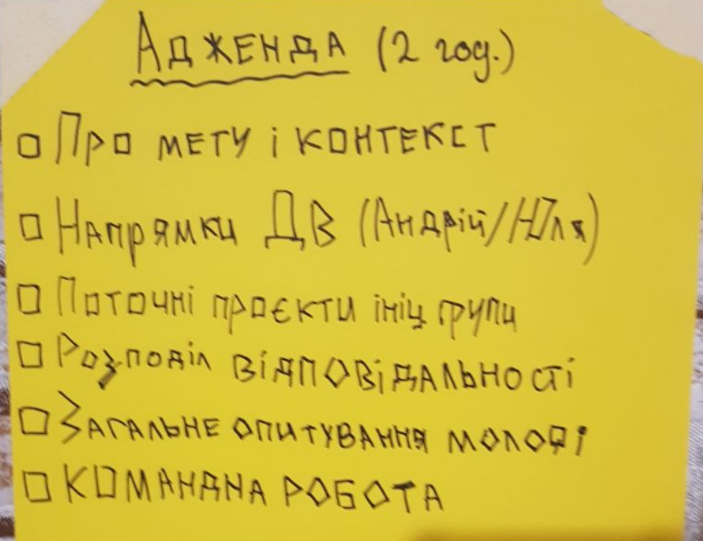 Адженда (2 год.)
Про мету і контекст
Напрямки ДВ (Андрій/Юля)
Поточні проєкти ініц групи
Розподіл відповідальності
Загальне опитування молоді
Командна робота